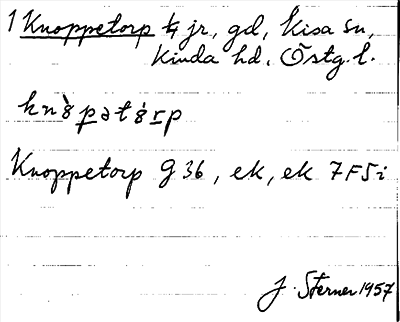 1 Knoppetorp ¼ jr, gd, Kisa sn,
Kinda hd, Östg. l.
knòpatórp
Knoppetorp G 36, ek, ek 7F5i
J. Sterner 1957